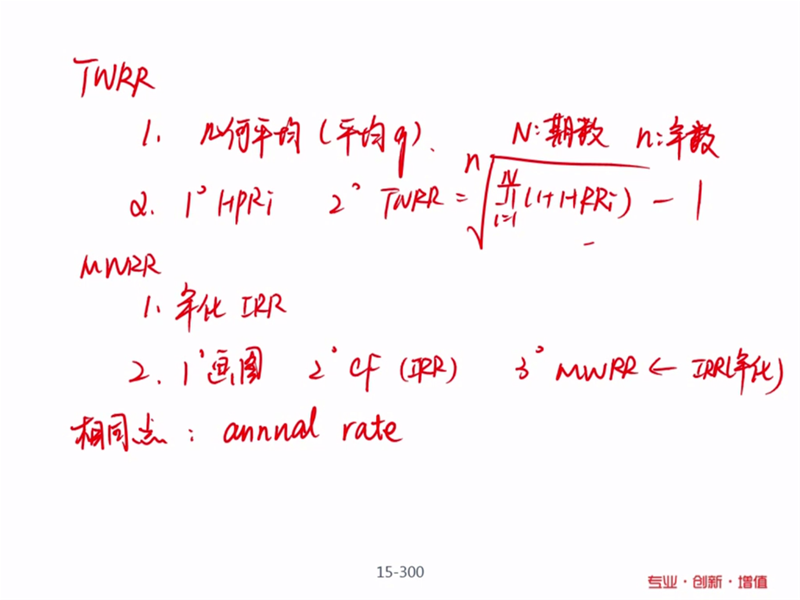 TWRR
1. 几何平均 (平均g). N:期数 n:年数
2. 1° HPRi 2° TWRR = ⁿ√∏ᵢ₌₁ᴺ(1+HPRi) - 1
MWRR
1. 年化 IRR
2. 1° 画图 2° CF (IRR) 3° MWRR ← IRR(年化)
相同点: annual rate
15-300
专业·创新·增值